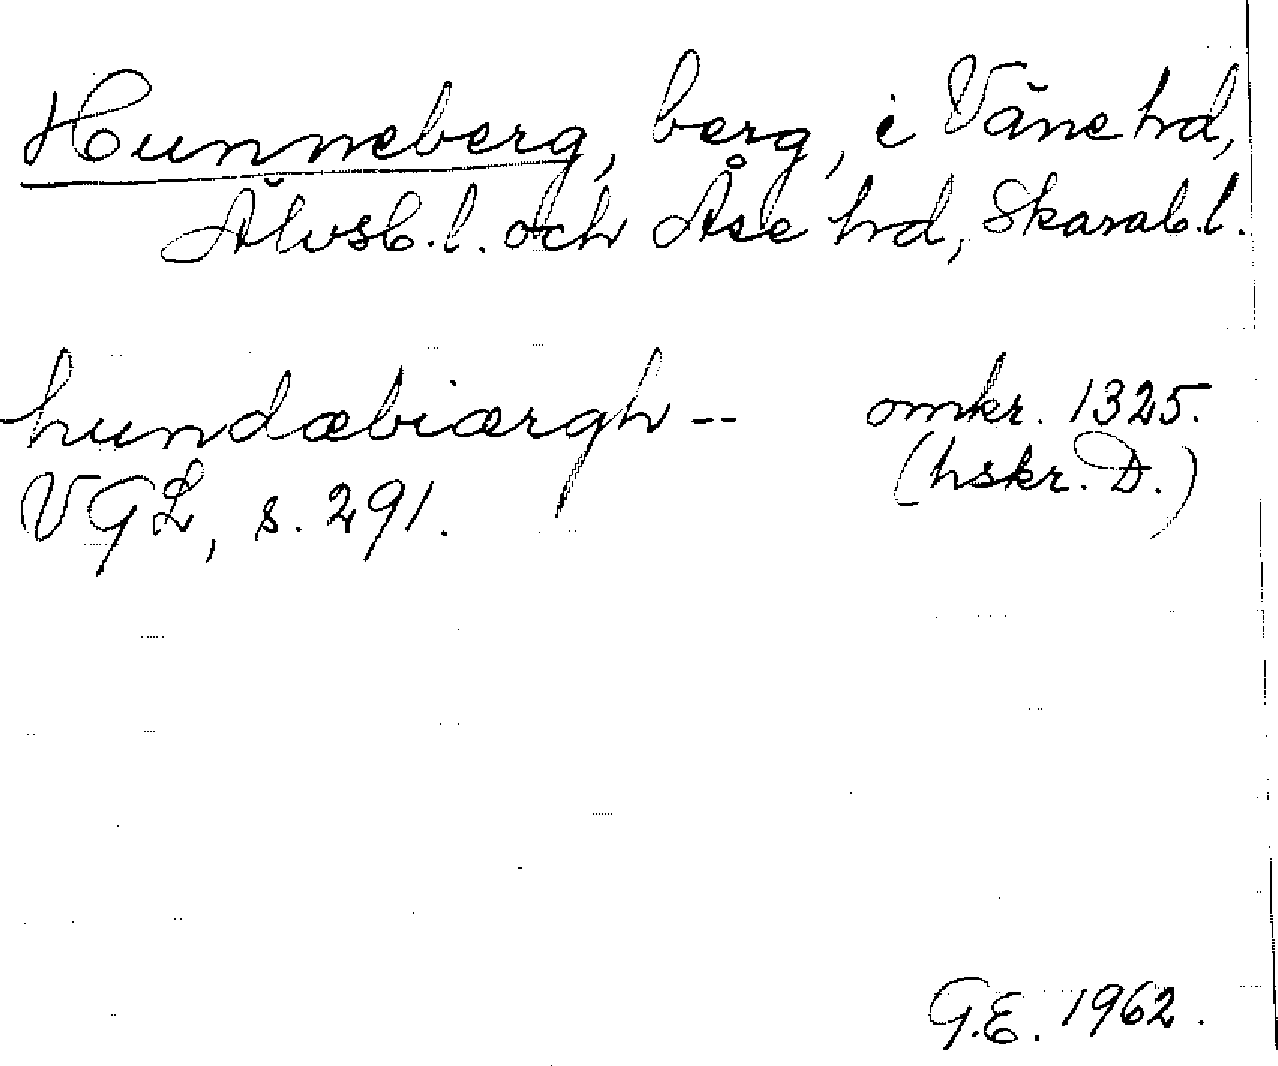 Hunneberg, berg, i Väne hd,
Älvsb. l. och Åse hd, Skarab. l.
hundæbiærgh -- omkr. 1325.
VGL, s. 291. (hskr. D.)
G.E. 1962.